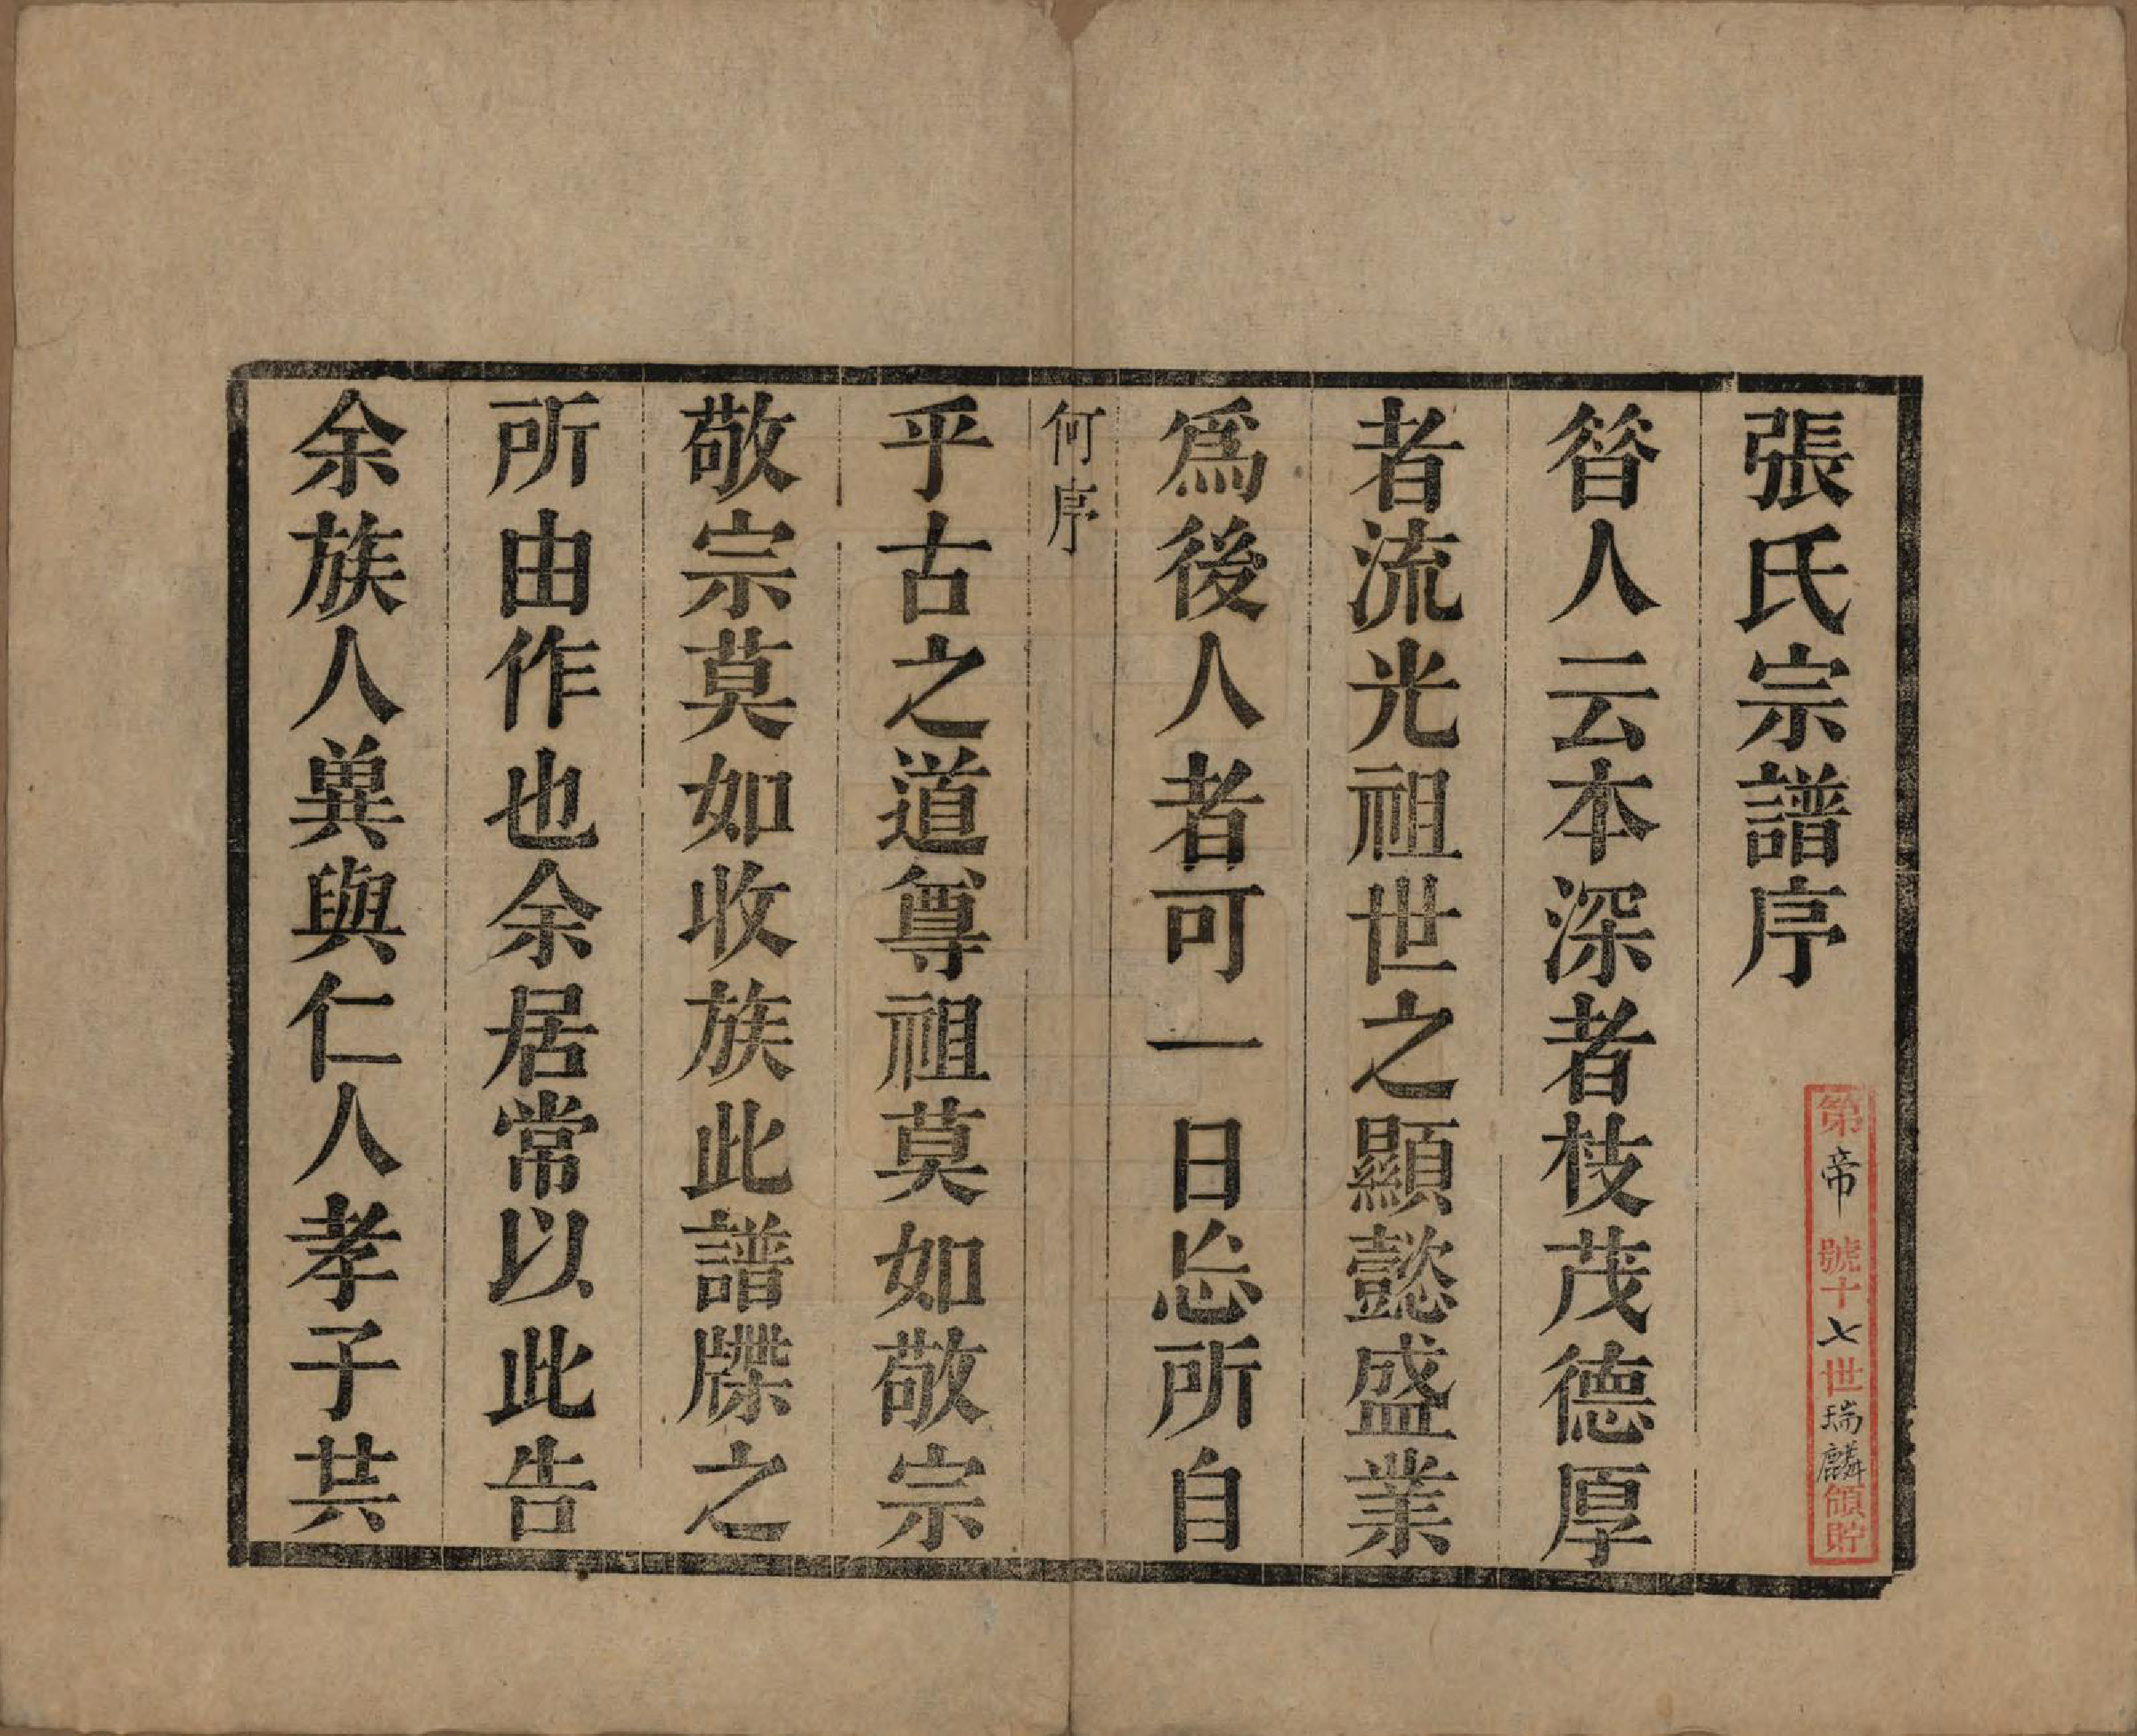 張氏宗譜序
第帝號十七世瑞麟領貯
昝人云本深者枝茂德厚
者流光祖世之顯懿盛業
爲後人者可一日忘所自
何序
乎古之道尊祖莫如敬宗
敬宗莫如收族此譜牒之
所由作也余居常以此告
余族人兾與仁人孝子共